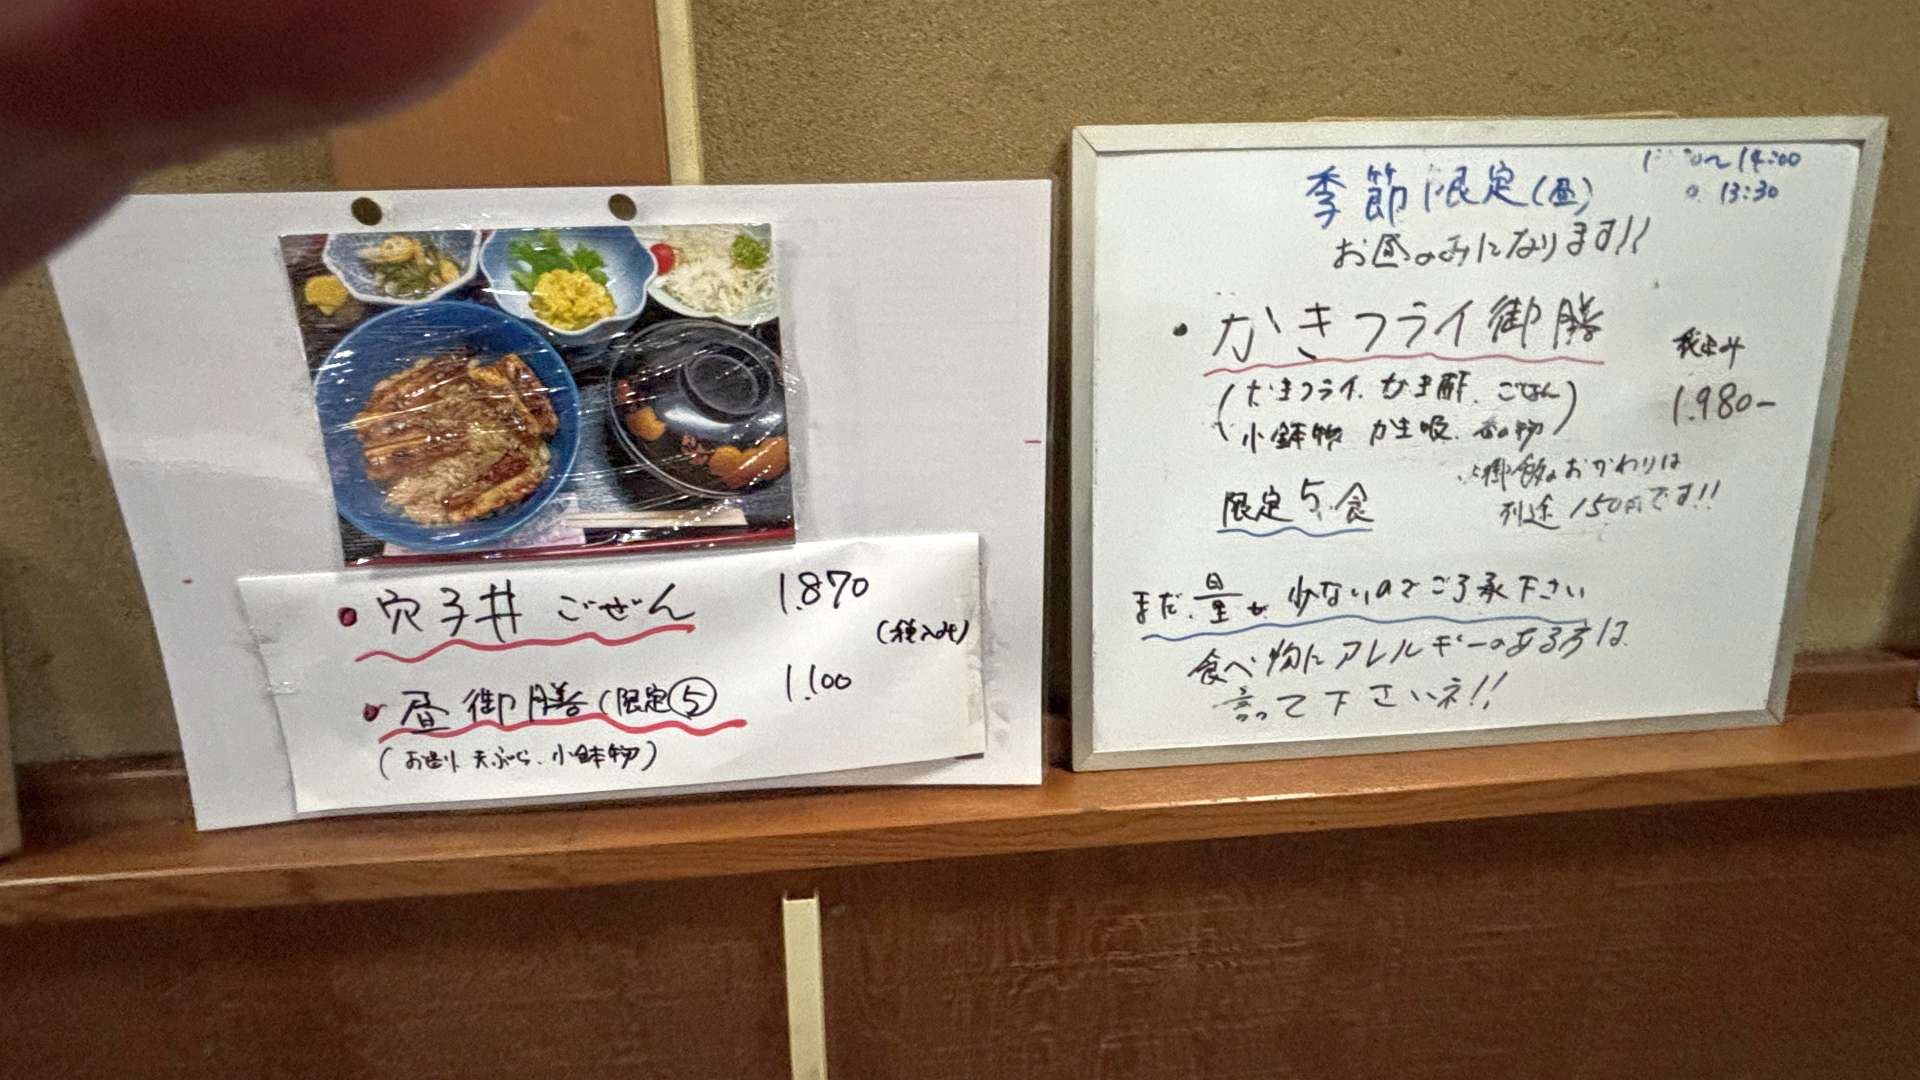 ● 穴子丼 ごぜん 1.870
(税込み)
● 昼御膳(限定⑤ 1.100
(お造り、天ぷら、小鉢物)
季節限定(昼)
お昼のみになります!!
~14:00
13:30
・かきフライ御膳
税込み
1.980-
(かきフライ、かき酢、ごはん
小鉢物 かき吸、香の物)
限定5食
御飯のおかわりは
別途150円です!!
まだ、量が少ないのでご了承下さい
食べ物にアレルギーのある方は
言って下さいネ!!